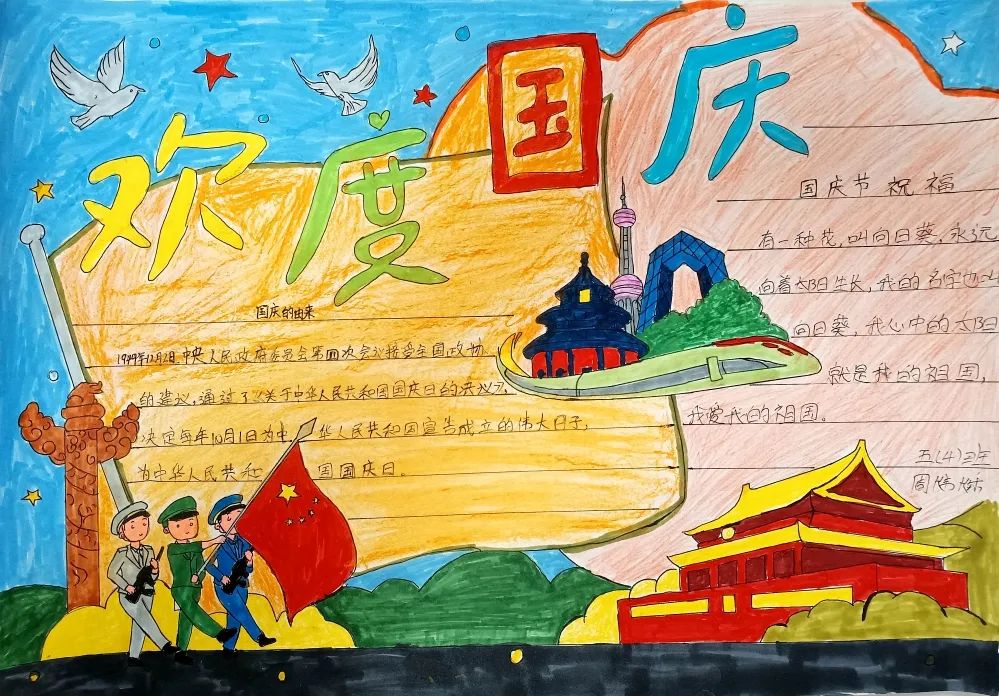 欢度国庆
国庆的由来
1949年12月2日,中央人民政府委员会第四次会议接受全国政协
的建议,通过了《关于中华人民共和国国庆日的决议》,
决定每年10月1日为中华人民共和国宣告成立的伟大日子,
为中华人民共和国国庆日。
国庆节祝福
有一种花,叫向日葵,永远
向着太阳生长,我的名字也叫
向日葵,我心中的太阳
就是我的祖国,
我爱我的祖国。
五(4)班
周